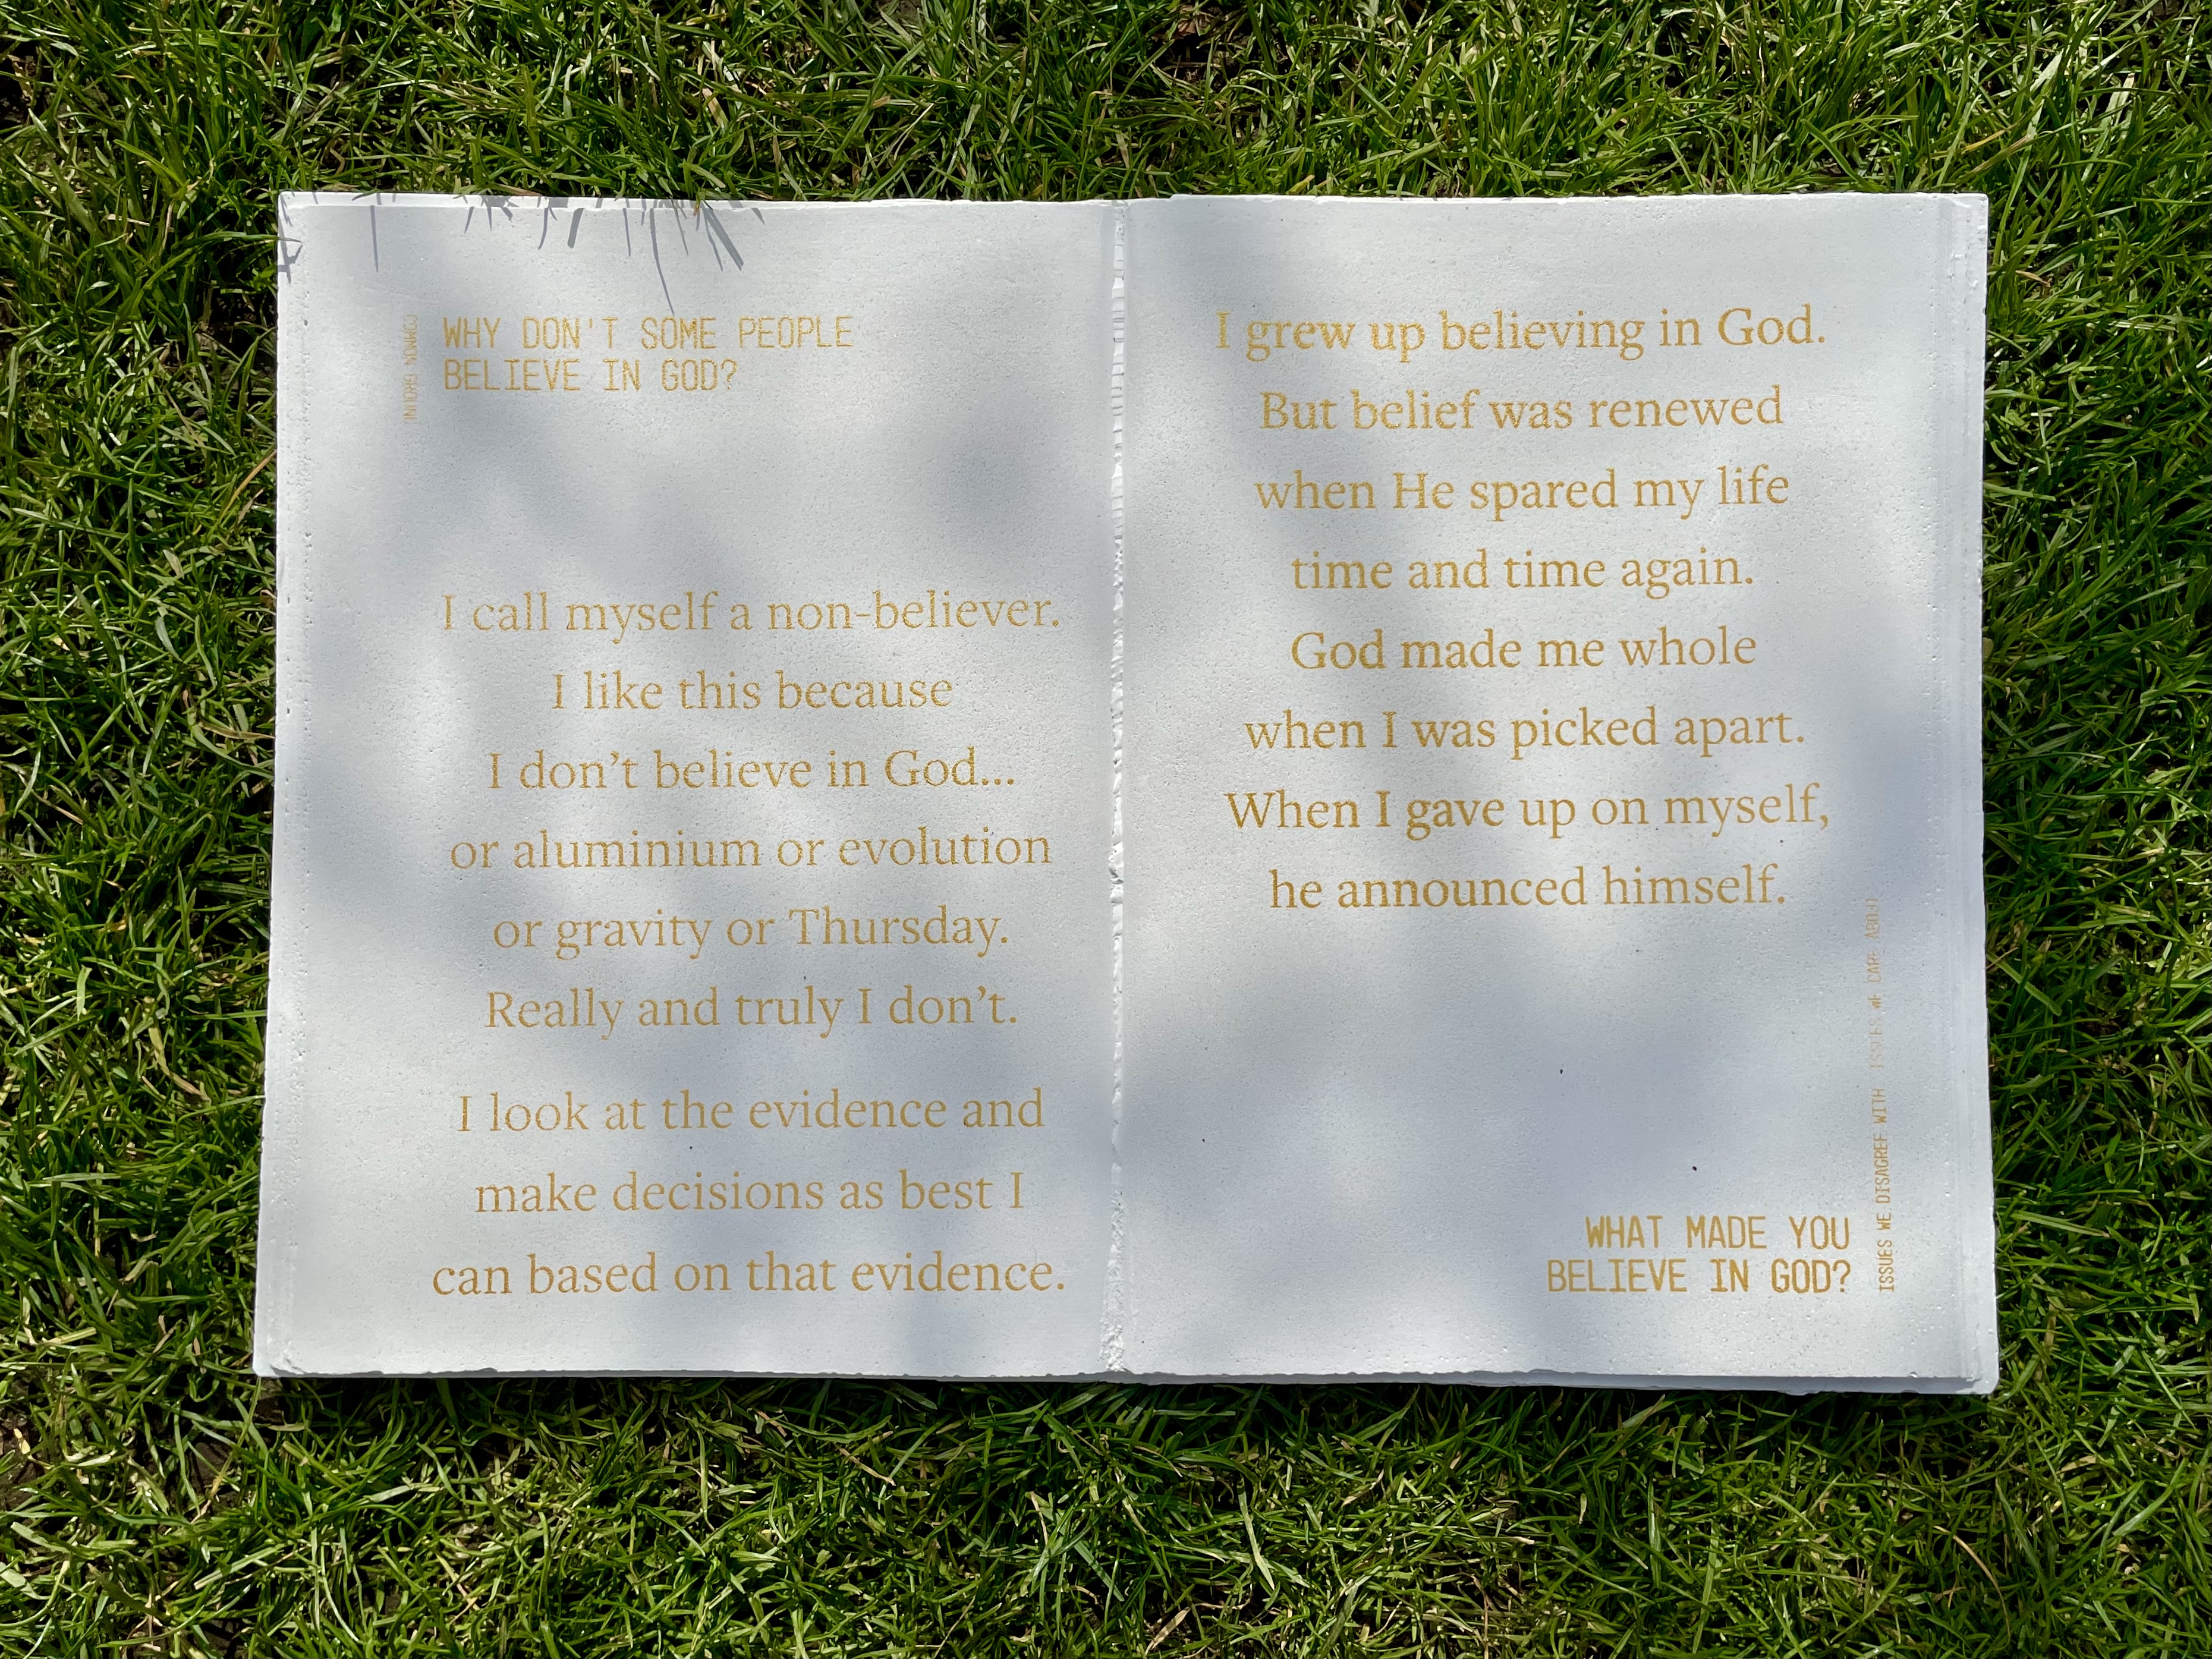 WHY DON'T SOME PEOPLE
BELIEVE IN GOD?
I call myself a non-believer.
I like this because
I don’t believe in God...
or aluminium or evolution
or gravity or Thursday.
Really and truly I don’t.
I look at the evidence and
make decisions as best I
can based on that evidence.
I grew up believing in God.
But belief was renewed
when He spared my life
time and time again.
God made me whole
when I was picked apart.
When I gave up on myself,
he announced himself.
WHAT MADE YOU
BELIEVE IN GOD?
ISSUES WE DISAGREE WITH ISSUES WE CARE ABOUT